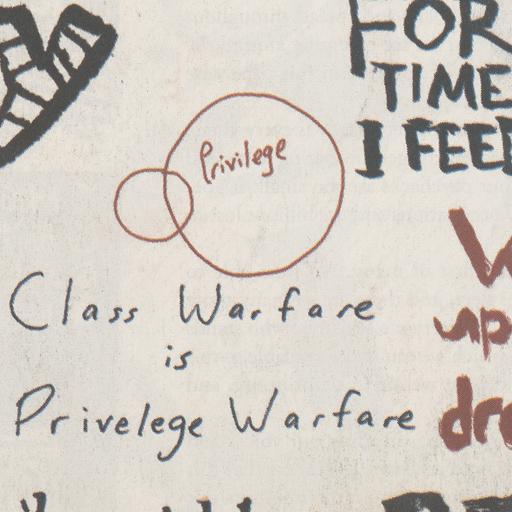 FOR
TIME
I FEE
Privilege
up
Class Warfare
is
Privelege Warfare